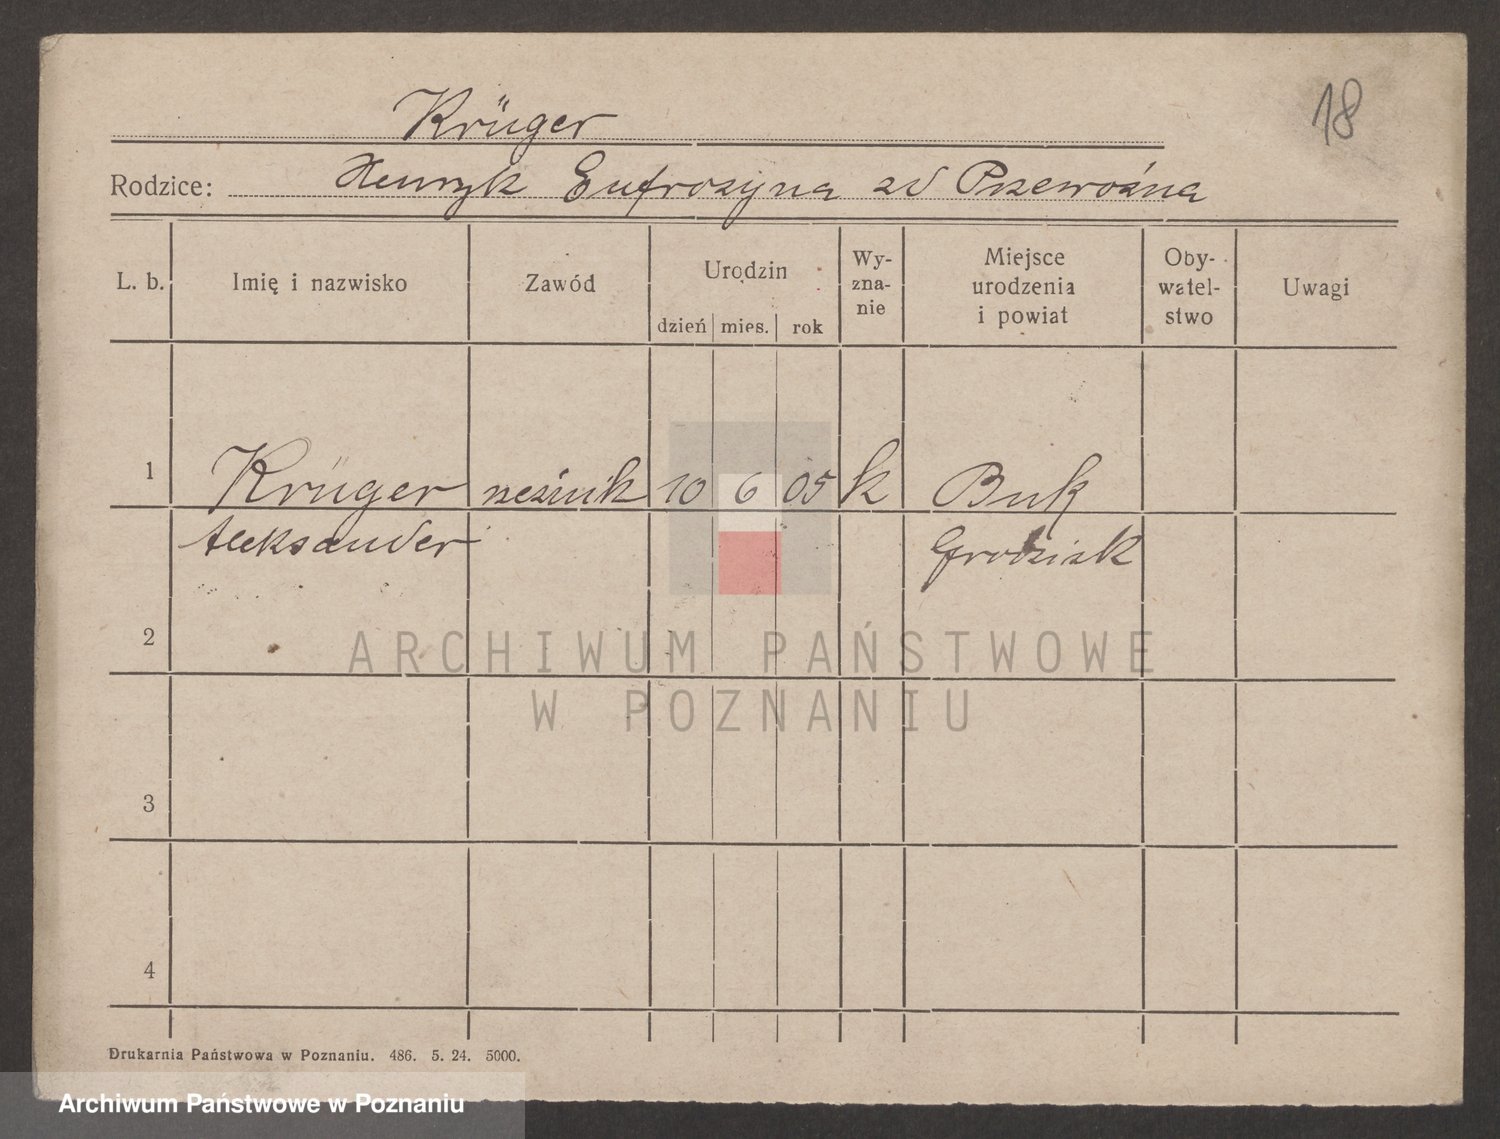 18
Krüger
Rodzice: Henryk Eufrozyna zd Przewoźna
L. b. Imię i nazwisko Zawód Urodzin Wy-zna-nie Miejsce urodzenia i powiat Oby-watel-stwo Uwagi
dzień mies. rok
1 Krüger rzeźnik 10 6 05 k Buk
Aleksander Grodzisk
2
ARCHIWUM PAŃSTWOWE
W POZNANIU
3
4
Drukarnia Państwowa w Poznaniu. 486. 5. 24. 5000.
Archiwum Państwowe w Poznaniu